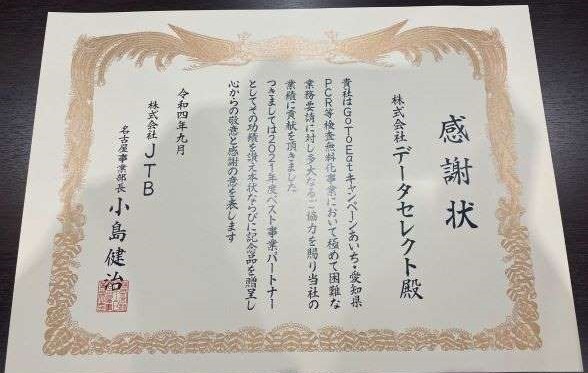 感謝状
株式会社 データセレクト殿
貴社はGoToEatキャンペーンあいち・愛知県
PCR等検査無料化事業において極めて困難な
業務要請に対し多大なるご協力を賜り当社の
業績に貢献を頂きました
つきましては2021年度ベスト事業パートナー
としてその功績を讃え本状ならびに記念品を贈呈し
心からの敬意と感謝の意を表します
令和四年九月
株式会社JTB
名古屋事業部長 小島健治